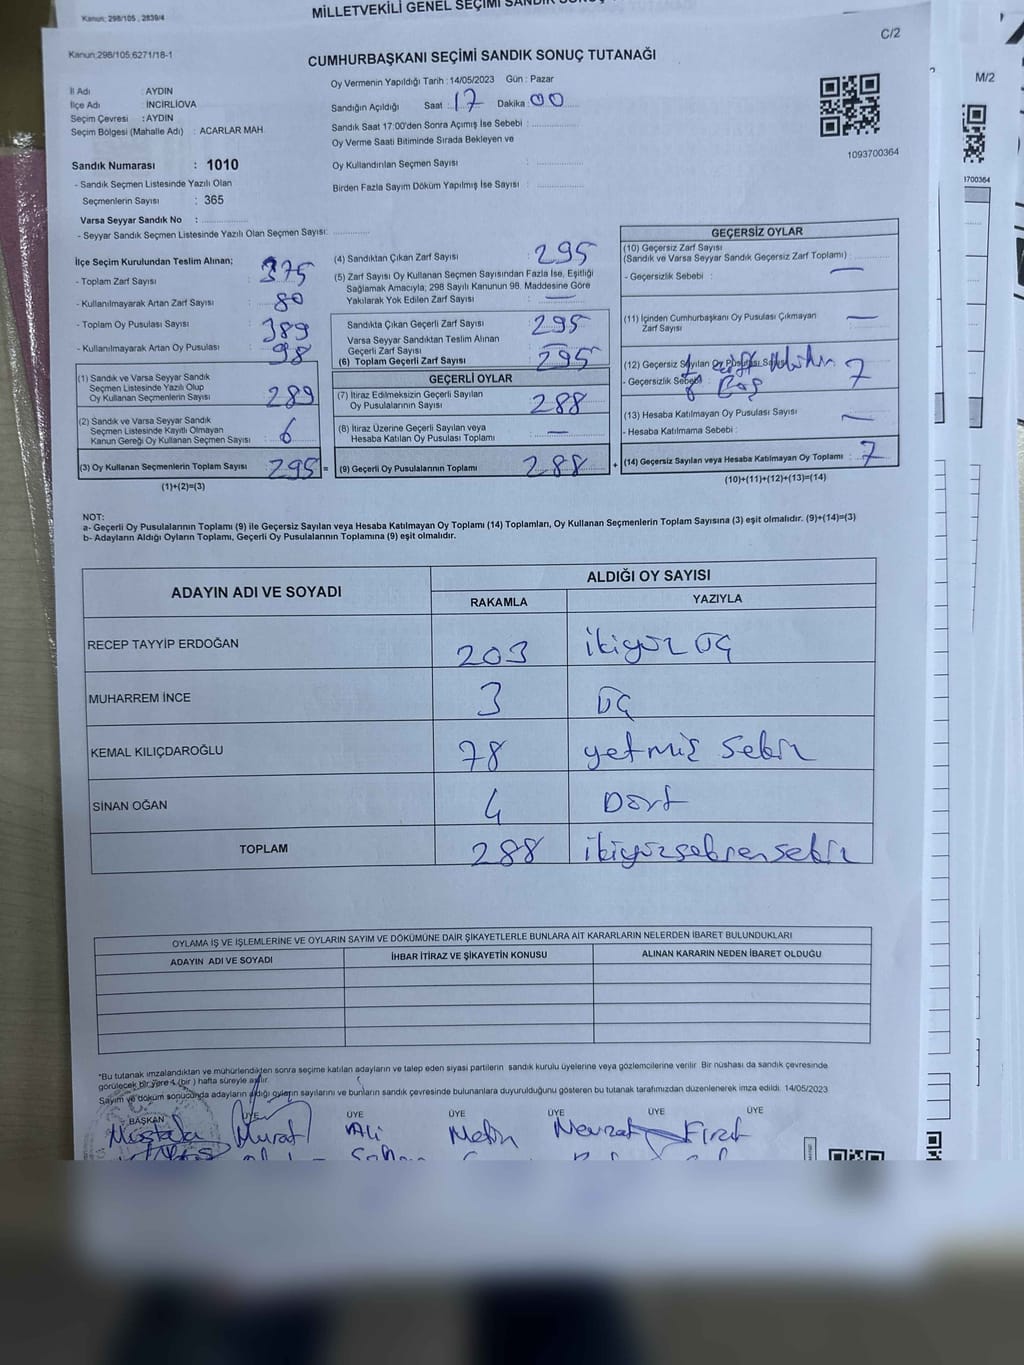 MİLLETVEKİLİ GENEL SEÇİMİ
Kanun: 298/105, 2839/4
Kanun:298/105.6271/18-1
C/2
CUMHURBAŞKANI SEÇİMİ SANDIK SONUÇ TUTANAĞI
İl Adı : AYDIN
İlçe Adı : İNCİRLİOVA
Seçim Çevresi : AYDIN
Seçim Bölgesi (Mahalle Adı) : ACARLAR MAH.
Sandık Numarası : 1010
- Sandık Seçmen Listesinde Yazılı Olan
Seçmenlerin Sayısı : 365
Varsa Seyyar Sandık No :
- Seyyar Sandık Seçmen Listesinde Yazılı Olan Seçmen Sayısı:
Oy Vermenin Yapıldığı Tarih : 14/05/2023 Gün : Pazar
Sandığın Açıldığı Saat : 17 Dakika : 00
Sandık Saat 17:00'den Sonra Açımış İse Sebebi :
Oy Verme Saati Bitiminde Sırada Bekleyen ve
Oy Kullandırılan Seçmen Sayısı :
Birden Fazla Sayım Döküm Yapılmış İse Sayısı :
1093700364
M/2
1700364
İlçe Seçim Kurulundan Teslim Alınan;
- Toplam Zarf Sayısı 375
- Kullanılmayarak Artan Zarf Sayısı 80
- Toplam Oy Pusulası Sayısı 389
- Kullanılmayarak Artan Oy Pusulası 98
(1) Sandık ve Varsa Seyyar Sandık
Seçmen Listesinde Yazılı Olup
Oy Kullanan Seçmenlerin Sayısı 289
(2) Sandık ve Varsa Seyyar Sandık
Seçmen Listesinde Kayıtlı Olmayan
Kanun Gereği Oy Kullanan Seçmen Sayısı 6
(3) Oy Kullanan Seçmenlerin Toplam Sayısı 295 =
(1)+(2)=(3)
(4) Sandıktan Çıkan Zarf Sayısı 295
(5) Zarf Sayısı Oy Kullanan Seçmen Sayısından Fazla İse, Eşitliği
Sağlamak Amacıyla; 298 Sayılı Kanunun 98. Maddesine Göre
Yakılarak Yok Edilen Zarf Sayısı : —
Sandıkta Çıkan Geçerli Zarf Sayısı 295
Varsa Seyyar Sandıktan Teslim Alınan
Geçerli Zarf Sayısı
(6) Toplam Geçerli Zarf Sayısı 295
GEÇERLİ OYLAR
(7) İtiraz Edilmeksizin Geçerli Sayılan
Oy Pusulalarının Sayısı 288
(8) İtiraz Üzerine Geçerli Sayılan veya
Hesaba Katılan Oy Pusulası Toplamı —
(9) Geçerli Oy Pusulalarının Toplamı 288 +
GEÇERSİZ OYLAR
(10) Geçersiz Zarf Sayısı
(Sandık ve Varsa Seyyar Sandık Geçersiz Zarf Toplamı)
- Geçersizlik Sebebi : —
(11) İçinden Cumhurbaşkanı Oy Pusulası Çıkmayan
Zarf Sayısı —
(12) Geçersiz Sayılan Oy Pusulası Sayısı 7
- Geçersizlik Sebebi : Boş
(13) Hesaba Katılmayan Oy Pusulası Sayısı —
- Hesaba Katılmama Sebebi :
(14) Geçersiz Sayılan veya Hesaba Katılmayan Oy Toplamı : 7
(10)+(11)+(12)+(13)=(14)
NOT:
a- Geçerli Oy Pusulalarının Toplamı (9) ile Geçersiz Sayılan veya Hesaba Katılmayan Oy Toplamı (14) Toplamları, Oy Kullanan Seçmenlerin Toplam Sayısına (3) eşit olmalıdır. (9)+(14)=(3)
b- Adayların Aldığı Oyların Toplamı, Geçerli Oy Pusulalarının Toplamına (9) eşit olmalıdır.
ADAYIN ADI VE SOYADI
ALDIĞI OY SAYISI
RAKAMLA YAZIYLA
RECEP TAYYİP ERDOĞAN 203 ikiyüz üç
MUHARREM İNCE 3 üç
KEMAL KILIÇDAROĞLU 78 yetmiş sekiz
SİNAN OĞAN 4 Dört
TOPLAM 288 ikiyüzseksensekiz
OYLAMA İŞ VE İŞLEMLERİNE VE OYLARIN SAYIM VE DÖKÜMÜNE DAİR ŞİKAYETLERLE BUNLARA AİT KARARLARIN NELERDEN İBARET BULUNDUKLARI
ADAYIN ADI VE SOYADI İHBAR İTİRAZ VE ŞİKAYETİN KONUSU ALINAN KARARIN NEDEN İBARET OLDUĞU
*Bu tutanak imzalandıktan ve mühürlendikten sonra seçime katılan adayların ve talep eden siyasi partilerin sandık kurulu üyelerine veya gözlemcilerine verilir. Bir nüshası da sandık çevresinde
görülecek bir yere 1 (bir) hafta süreyle asılır.
Sayım ve döküm sonucunda adayların aldığı oyların sayılarını ve bunların sandık çevresinde bulunanlara duyurulduğunu gösteren bu tutanak tarafımızdan düzenlenerek imza edildi. 14/05/2023
BAŞKAN ÜYE ÜYE ÜYE ÜYE ÜYE ÜYE
Mustafa Murat Ali Metin Nevzat Fırat